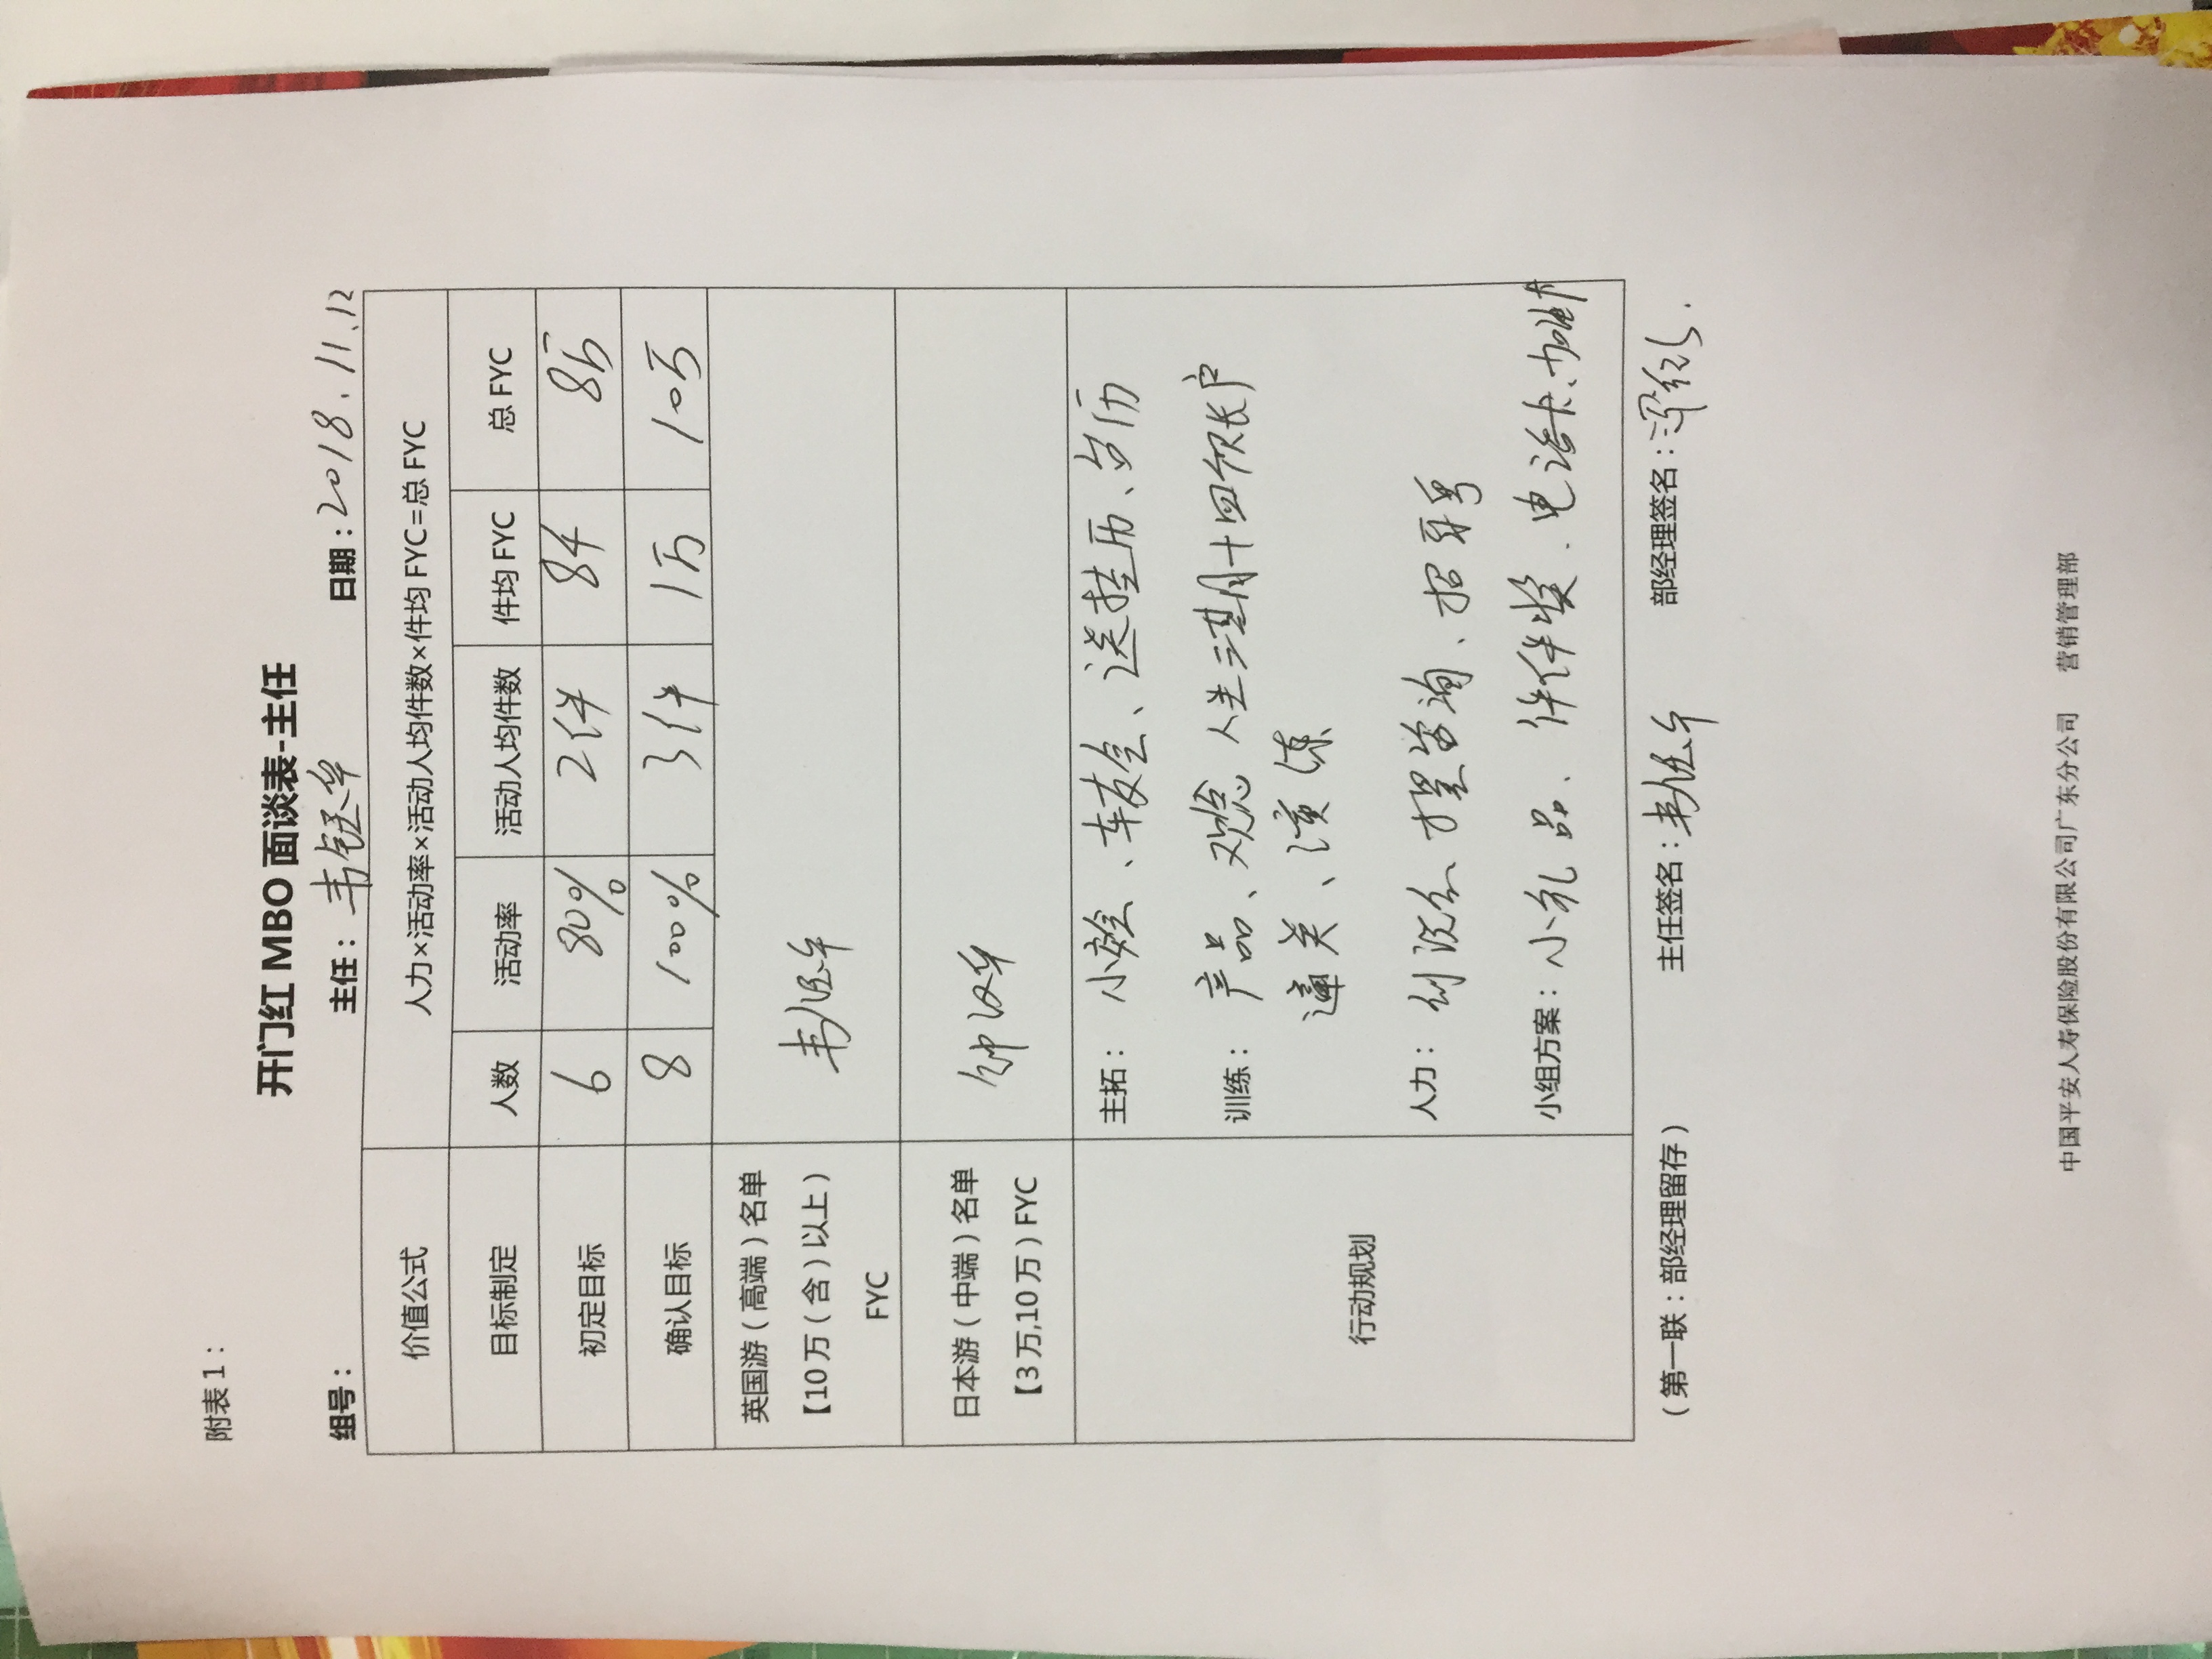 附表1：
开门红 MBO 面谈表-主任
组号： 主任：韦钰华 日期：2018.11.12
价值公式 人力×活动率×活动人均件数×件均 FYC=总 FYC
目标制定 人数 活动率 活动人均件数 件均 FYC 总 FYC
初定目标 6 80% 2件 84 8万
确认目标 8 100% 3件 1万 10万
英国游（高端）名单
【10万（含）以上）
FYC
日本游（中端）名单
【3万,10万）FYC
钟
行动规划
主拓： 小鲍、车友会、送挂历、台历
训练： 产品、观念 人生三期十四个账户
通关、演练
人力： 咨询、招聘
小组方案：小礼品、件件奖、电话卡、加油卡
（第一联：部经理留存） 主任签名： 部经理签名：
中国平安人寿保险股份有限公司广东分公司 营销管理部